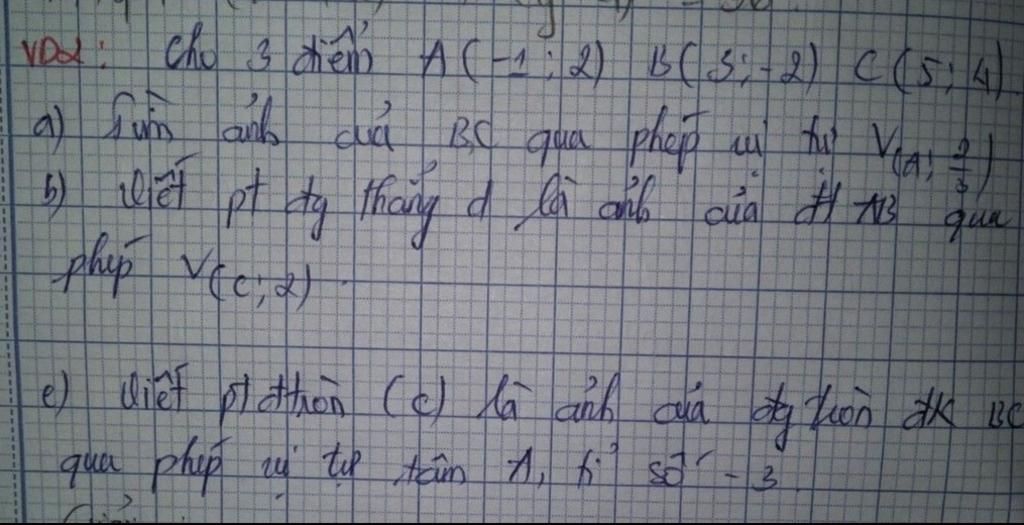 VD2: Cho 3 điểm A(-1; 2) B(3; -2) C(5; 4)
a) Tìm ảnh của BC qua phép vị tự V(A; 2/3)
b) Viết pt đg thẳng d là ảnh của đt AB qua
phép V(C; 2)
c) Viết pt đtròn (C) là ảnh của đg tròn đk BC
qua phép vị tự tâm A, tỉ số -3